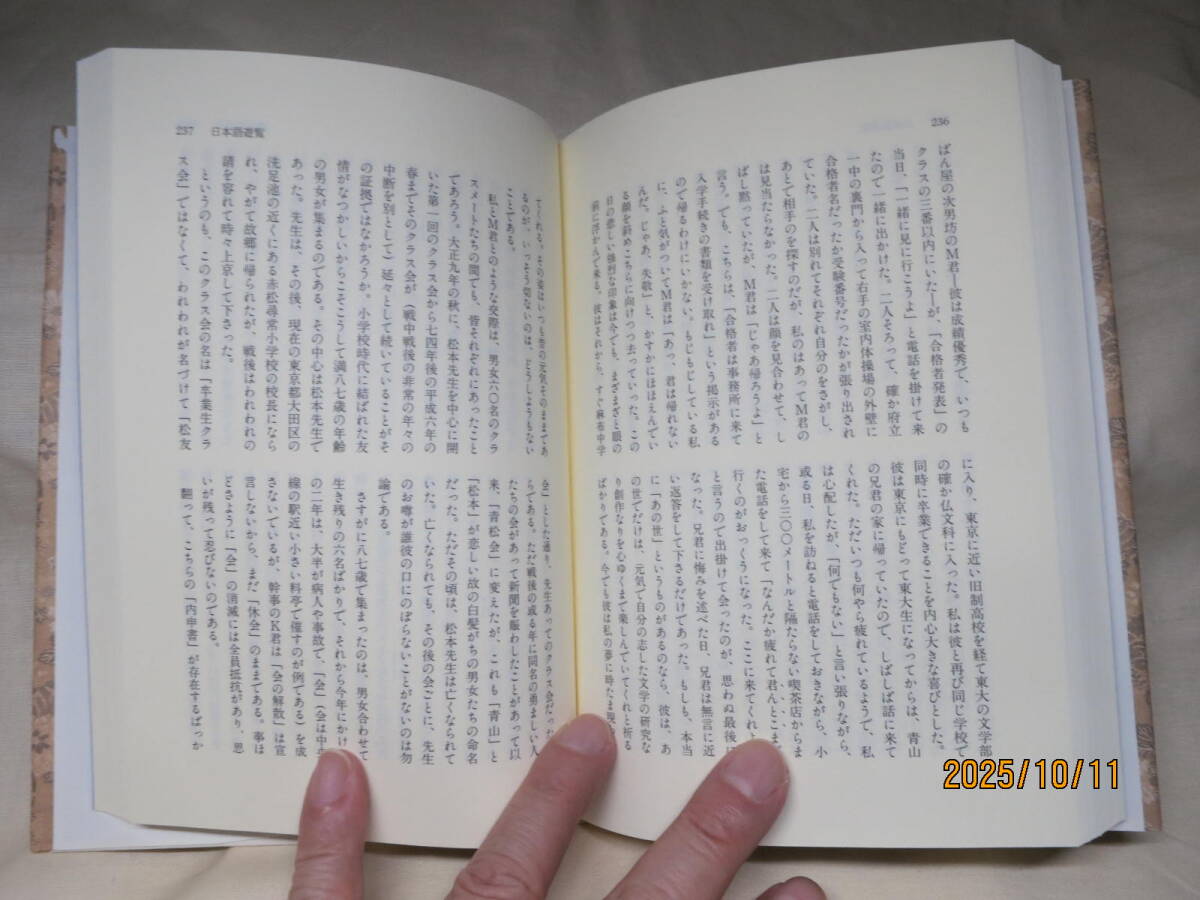 236
ばん屋の次男坊のM君―彼は成績優秀で、いつも
クラスの三番以内にいた―が、「合格者発表」の
当日、「一緒に見に行こうよ」と電話を掛けて来
たので一緒に出かけた。二人そろって、確か府立
一中の裏門から入って右手の室内体操場の外壁に
合格者名だったか受験番号だったかが張り出され
ていた。二人は別れてそれぞれ自分のをさがし、
あとで相手のを探すのだが、私のはあってM君の
は見当たらなかった。二人は顔を見合わせて、し
ばし黙っていたが、M君は「じゃあ帰ろうよ」と
言う。でも、こちらは、「合格者は事務所に来て
入学手続きの書類を受け取れ」という掲示がある
ので帰るわけにいかない。もじもじしている私
に、ふと気がついてM君は「あっ、君は帰れない
んだ。じゃあ、失敬」と、かすかにほほえんでい
る顔を斜めこちらに向けつつ去っていった。この
日の悲しい強烈な印象は今でも、まざまざと眼の
前に浮かんで来る。彼はそれから、すぐ麻布中学
に入り、東京に近い旧制高校を経て東大の文学部
の確か仏文科に入った。私は彼と再び同じ学校で
同時に卒業できることを内心大きな喜びとした。
彼は東京にもどって東大生になってからは、青山
の兄君の家に帰っていたので、しばしば話に来て
くれた。ただいつも何やら疲れているようで、私
は心配したが、「何でもない」と言い張りながら、
或る日、私を訪ねると電話をしておきながら、小
宅から三〇〇メートルと隔たらない喫茶店からま
た電話をして来て「なんだか疲れて君んとこま
行くのがおっくうになった。ここに来てくれよ
と言うので出掛けて会ったのが、思わぬ最後に
なった。兄君に悔みを述べた日、兄君は無言に近
い返答をして下さるだけであった。もしも、本当
に「あの世」というものがあるのなら、彼は、あ
の世でだけは、元気で自分の志した文学の研究な
り創作なりを心ゆくまで楽しんでいてくれと祈る
ばかりである。今でも彼は私の夢に時たま現
237 日本語遊覧
てくれる。その姿はいつも昔の元気そのままであ
るのが、いっそう切ないのは、どうしようもない
ことである。
私とM君とのような交際は、男女六〇名のクラ
スメートたちの間でも、皆それぞれにあったこと
であろう。大正九年の秋に、松本先生を中心に開
いた第一回のクラス会から七四年後の平成六年の
春までそのクラス会が（戦中戦後の非常の年々の
中断を別として）延々として続いていることがそ
の証拠ではなかろうか。小学校時代に結ばれた友
情がなつかしいからこそこうして満八七歳の年齢
の男女が集まるのである。その中心は松本先生で
あった。先生は、その後、現在の東京都大田区の
洗足池の近くにある赤松尋常小学校の校長になら
れ、やがて故郷に帰られたが、戦後はわれわれの
請を容れて時々上京して下さった。
というのも、このクラス会の名は「卒業生クラ
ス会」ではなくて、われわれが名づけて「松友
会」とした通り、先生あってのクラス会だった
らである。ただ戦後の或る年に同名の勇ましい人
たちの会があって新聞を賑わしたことがあって以
来、「青松会」に変えたが、これも「青山」と
「松本」が悲しい故の白髪がちの男女たちの命名
だった。ただその頃は、松本先生は亡くなられて
いた。亡くなられても、その後の会ごとに、先生
のお噂が誰彼の口にのぼらないことがないのは勿
論である。
さすがに八七歳で集まったのは、男女合わせて
生き残りの六名ばかりで、それから今年にかけ
の二年は、大半が病人や事故で、「会」（会は中央
線の駅近い小さい料亭で催すのが例である）を成
さないでいるが、幹事のK君は「会の解散」は宣
言しないから、まだ「休会」のままである。事ほ
どさように「会」の消滅には全員抵抗があり、思
いが残って忍びないのである。
翻って、こちらの「内申書」が存在するばっか
2025/10/11